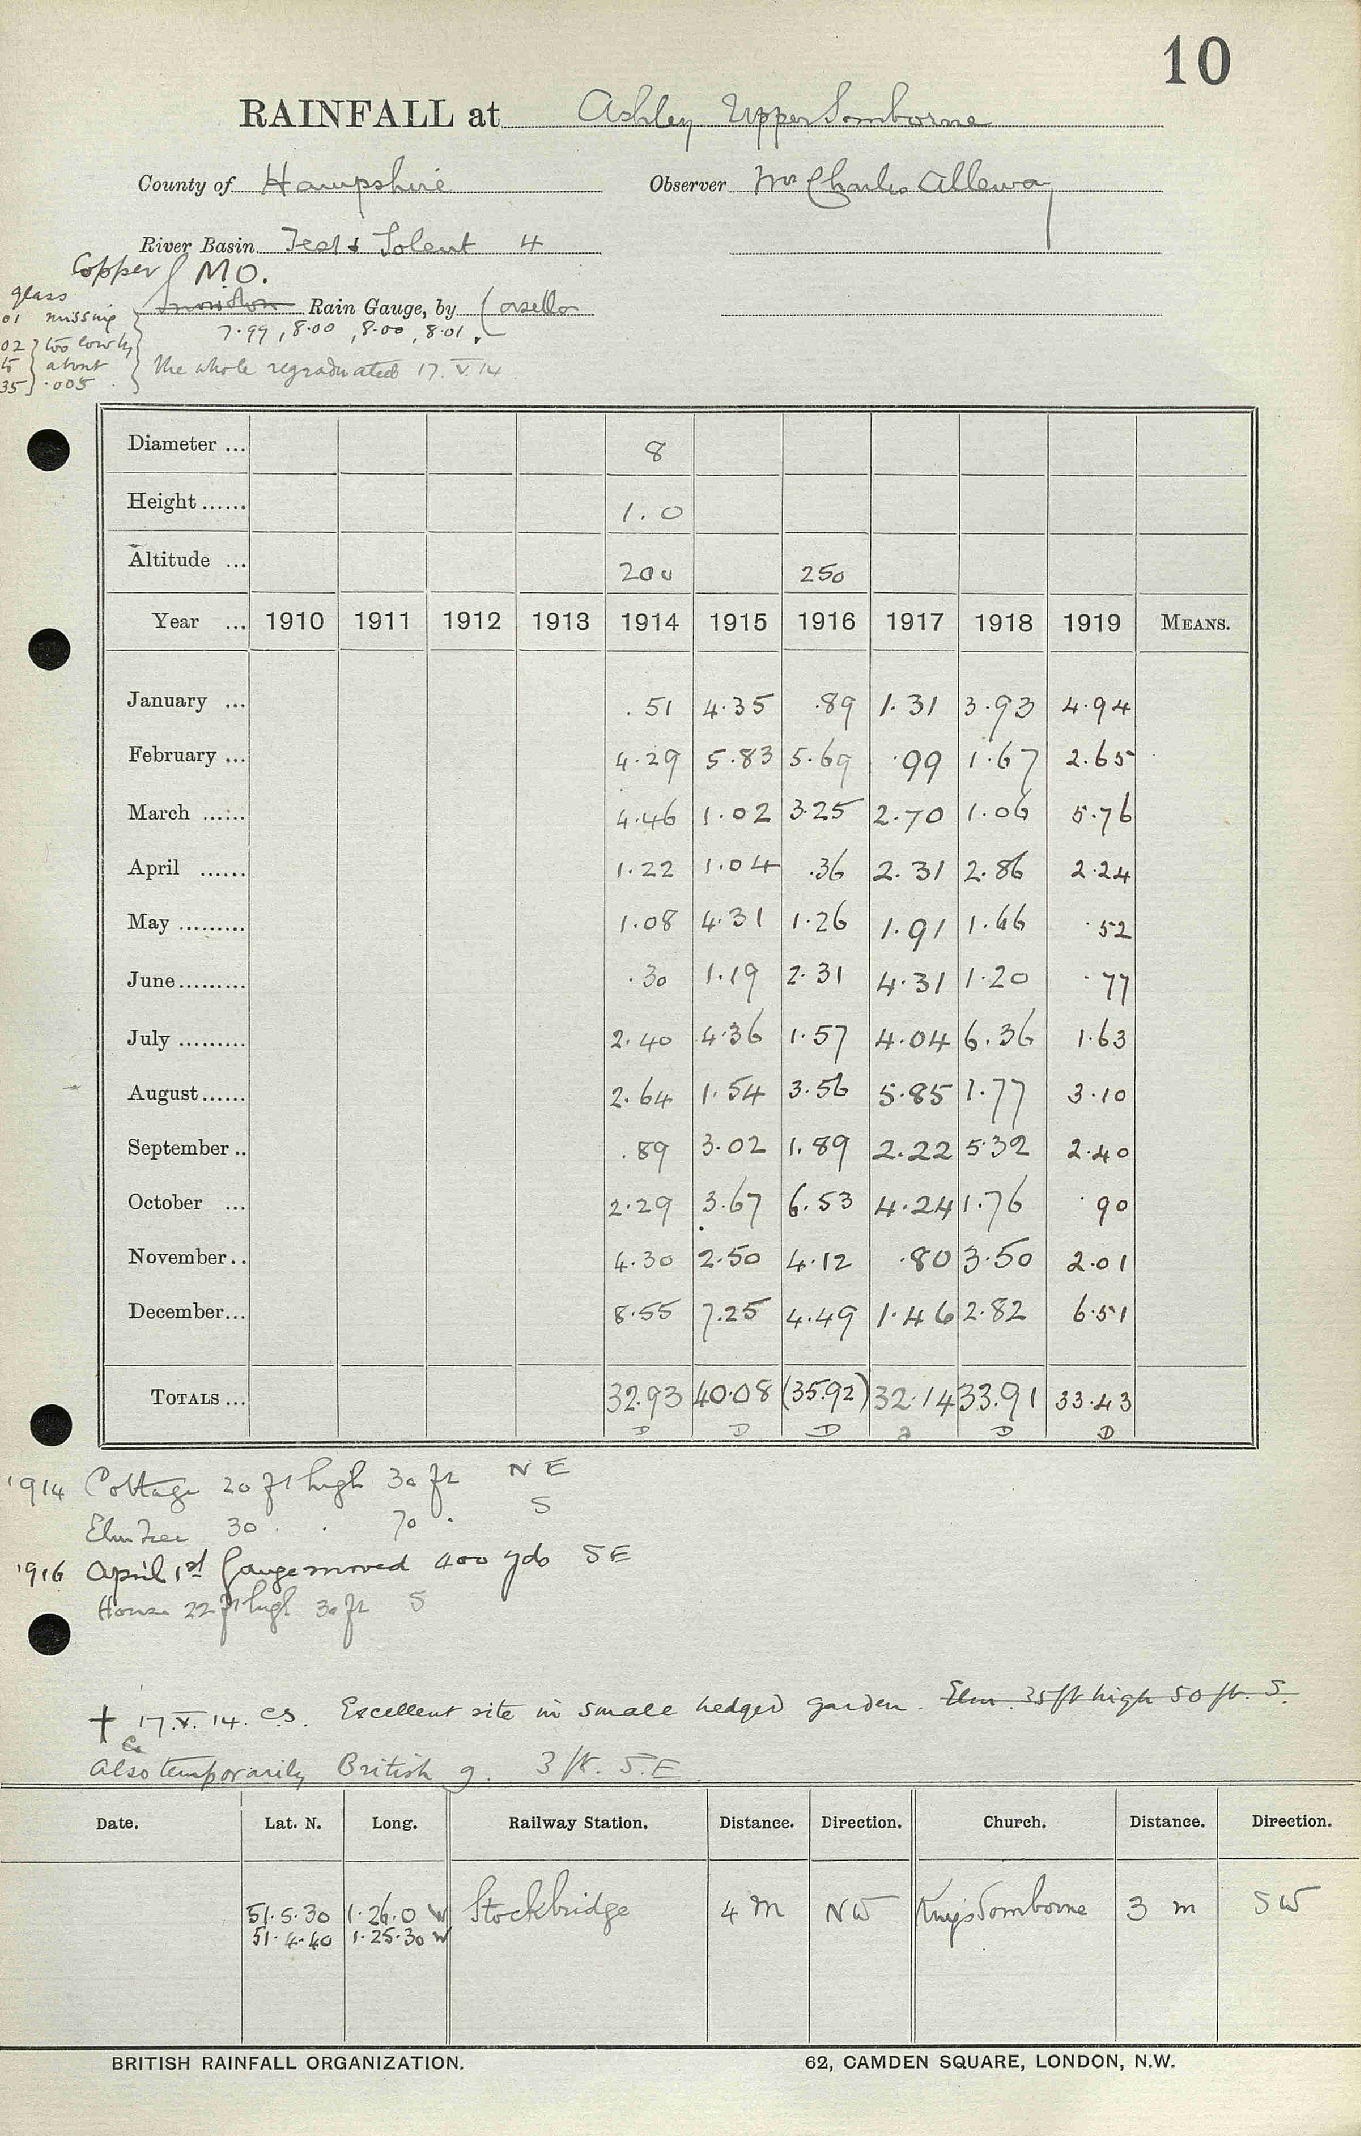 10
RAINFALL at Ashley Upper Somborne
County of Hampshire Observer Mr Charles Alleway
River Basin Test & Solent 4
Copper M.O.
Snowdon Rain Gauge, by Casella
7.99, 8.00, 8.00, 8.01.
glass
01 missing
02 } too low by
15 } about
35 } .005
The whole regraduated 17.V.14
Diameter ... 8
Height ...... 1.0
Altitude ... 200 250
Year ... 1910 1911 1912 1913 1914 1915 1916 1917 1918 1919 MEANS.
January ... .51 4.35 .89 1.31 3.93 4.94
February ... 4.29 5.83 5.69 .99 1.67 2.65
March ...... 4.46 1.02 3.25 2.70 1.06 5.76
April ...... 1.22 1.04 .36 2.31 2.86 2.24
May ......... 1.08 4.31 1.26 1.91 1.66 .52
June ......... .30 1.19 2.31 4.31 1.20 .77
July ......... 2.40 4.36 1.57 4.04 6.36 1.63
August ...... 2.64 1.54 3.56 5.85 1.77 3.10
September .. .89 3.02 1.89 2.22 5.32 2.40
October ... 2.29 3.67 6.53 4.24 1.76 .90
November .. 4.30 2.50 4.12 .80 3.50 2.01
December ... 8.55 7.25 4.49 1.46 2.82 6.51
TOTALS ... 32.93 40.08 (35.92) 32.14 33.91 33.43
D D D D D
1914 Cottage 20 ft high 30 ft NE
Elm Tree 30 . 70 . S
1916 April 1st Gauge moved 400 yds SE
House 22 ft high 30 ft S
† 17.V.14. CS. Excellent site in small hedged garden. Elm 35 ft high 50 ft. S.
Also temporarily British g. 3 ft. S.E
Date. Lat. N. Long. Railway Station. Distance. Direction. Church. Distance. Direction.
51.5.30 1.26.0 W Stockbridge 4 m NW Kings Somborne 3 m SW
51.4.40 1.25.30 W
BRITISH RAINFALL ORGANIZATION. 62, CAMDEN SQUARE, LONDON, N.W.